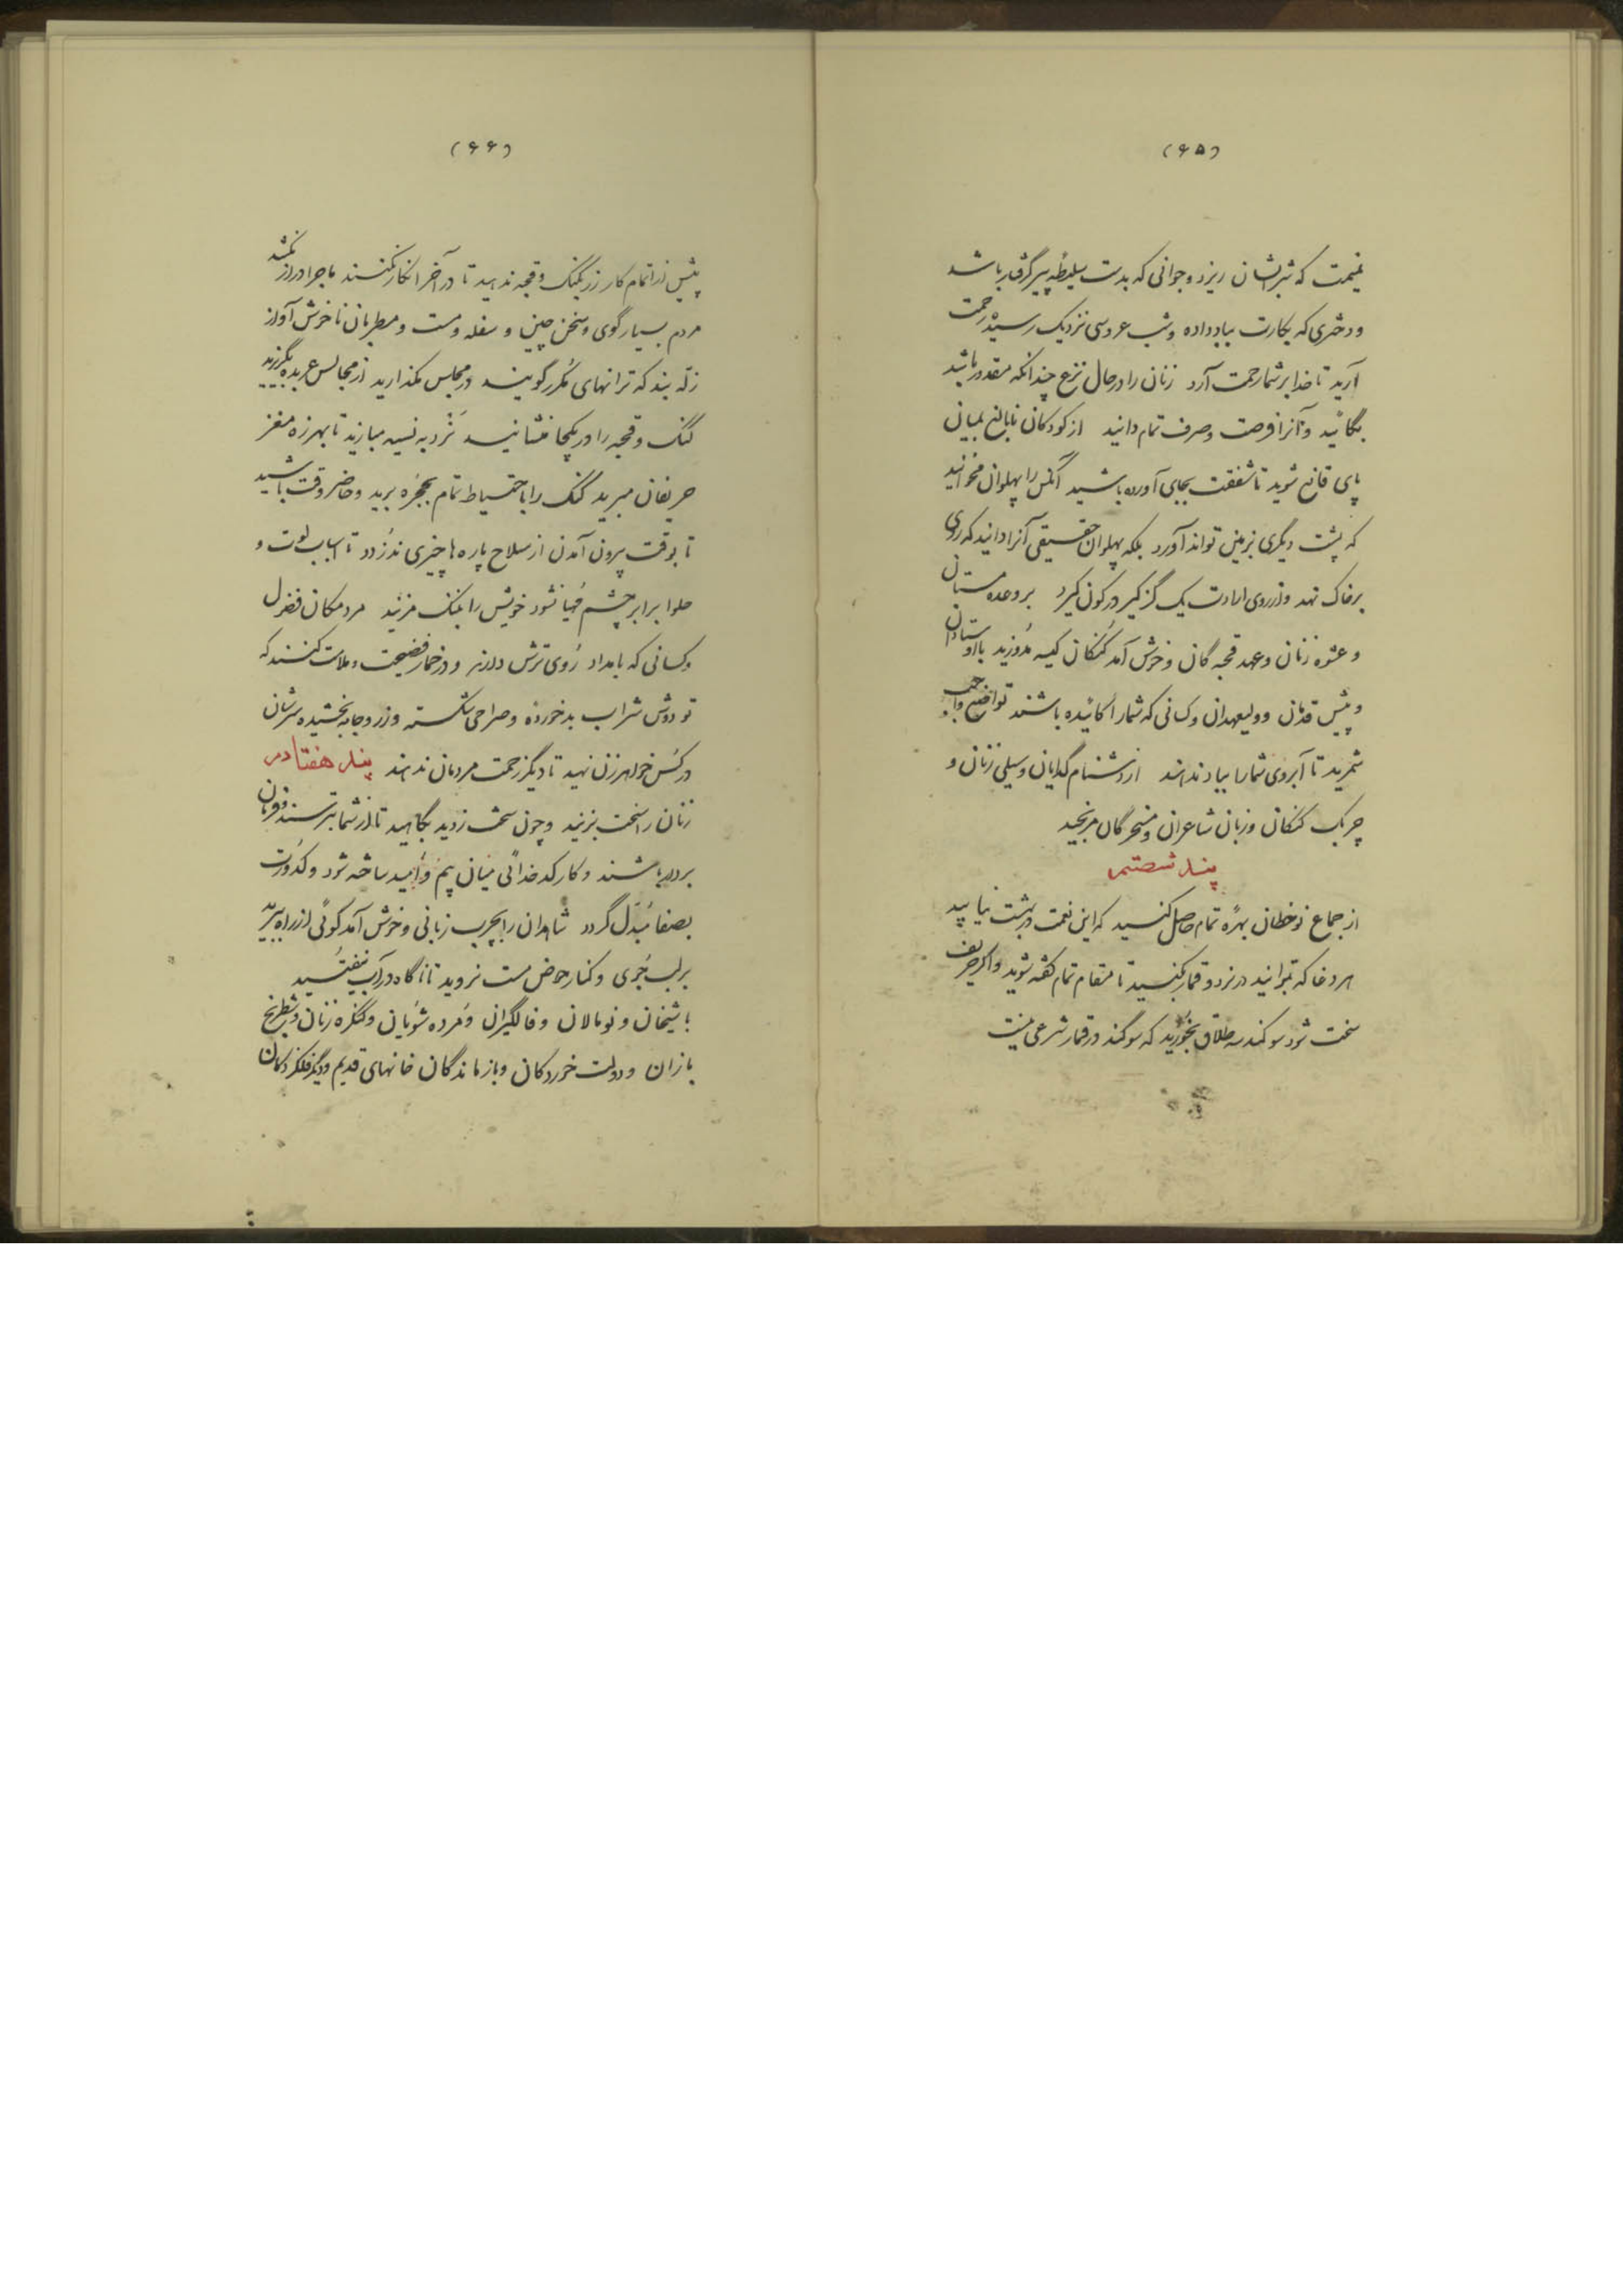 (۶۵)
غنیمت که شرابشان ریزد و جوانی که بدست سلیطه پیر گرفتار باشد
و دختری که بکارت بباد داده و شب عروسی نزدیک رسیده رحمت
آرید تا خدا بر شما رحمت آرد زنان را در حال نزع چندانکه مقدور باشد
بگائید و آنرا فرصت و صرف تمام دانید از کودکان نابالغ بمیان
پای قانع شوید تا شفقت بجای آورده باشید آنکس را پهلوان مخوانید
که پشت دیگری بزمین تواند آورد بلکه پهلوان حقیقی آنرا دانید که روی
بر خاک نهد و از روی ارادت یک گز کیر در کون گیرد بر وعده مستان
و عشوه زنان و عهد قحبه گان و خوش آمد کنگان کیسه مدوزید با اوستادان
و پیش قدمان و ولیعهدان و کسانی که شما را گائیده باشند تواضع واجب
شمرید تا آبروی شما را بباد ندهند از دشنام گدایان و سیلی زنان و
چربک کنگان و زبان شاعران و مسخرگان مرنجید
پند شصتم
از جماع نوخطان بهره تمام حاصل کنید که این نعمت در بهشت نیابید
هر دغا که بتوانید در نرد و قمار بکنید تا مقام تمام گفته شوید و اگر حریف
سخت شود سوگند سه طلاق بخورید که سوگند در قمار شرعی نیست
(۶۶)
پیش از اتمام کار زر بکنگ و قحبه ندهید تا در آخر انکار نکنند و ماجرا دراز نکشد
مردم بسیار گوی و سخن چین و سفله و مست و مطربان ناخوش آواز
زله بند که ترانهای مکرر گویند در مجلس مگذارید از مجالس عربده بگریزید
کنگ و قحبه را در یکجا منشانید نرد به نسیه مبازید تا بهرزه مغز
حریفان مبرید کنگ را باحتیاط تمام بحجره برید و حاضر وقت باشید
تا بوقت بیرون آمدن از سلاح پاره ها چیزی ندزدد تا اسباب لوت و
حلوا برابر چشم مهیا نشود خویش را بکنگ مزنید مردمکان فضول
و کسانی که بامداد روی ترش دارند و در خمار فضیحت و ملامت کنند که
تو دوش شراب بد خورده و صراحی شکسته و زر و جامه بخشیده سرشان
در کس خواهر زن نهید تا دیگر زحمت مردمان ندهند پند هفتادم
زنان را سخت بزنید و چون سخت زدید بگائید تا از شما بترسند و فرمان
بردار باشند و کار کدخدائی میان بیم و امید ساخته شود و کدورت
بصفا مبدل گردد شاهدان را بچرب زبانی و خوش آمد گوئی از راه ببرید
بر لب جوی و کنار حوض مست نروید تا ناگاه در آب نیفتید
با شیخان و نومالان و فالگیران و مرده شویان و کنگره زنان و شطرنج
بازان و دولت خوردگان و بازماندگان خانهای قدیم و دیگر فلکزدگان